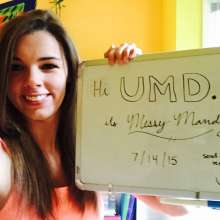 Hi UMD.
its Messy Mandi
7/14/15
send